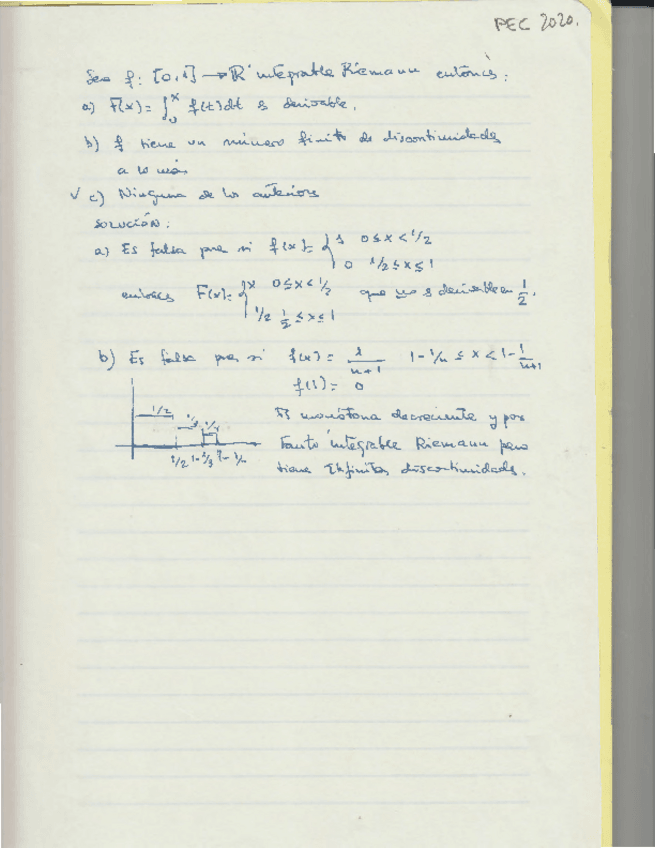 PEC 2020.
Sea f: [0,1] → R integrable Riemann entonces:
a) F(x) = ∫₀ˣ f(t)dt es derivable.
b) f tiene un número finito de discontinuidades
a lo más
✓ c) Ninguna de las anteriores
SOLUCIÓN:
a) Es falsa pues si f(x) = { 1 0≤x<1/2
0 1/2≤x≤1
entonces F(x) = { x 0≤x<1/2 que no es derivable en 1/2.
1/2 1/2≤x≤1
b) Es falsa pues si f(x) = 1/(n+1) 1-1/n ≤ x < 1-1/(n+1)
f(1) = 0
1/2 1/3 1/4
1/2 1-1/3 1-1/n
Es monótona decreciente y por
tanto integrable Riemann pero
tiene infinitas discontinuidades.